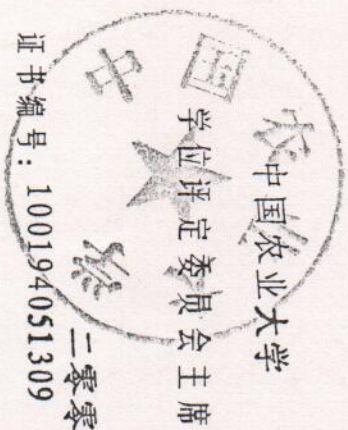 中国农业大学
学位评定委员会主席
二零零
证书编号：1001940513​09